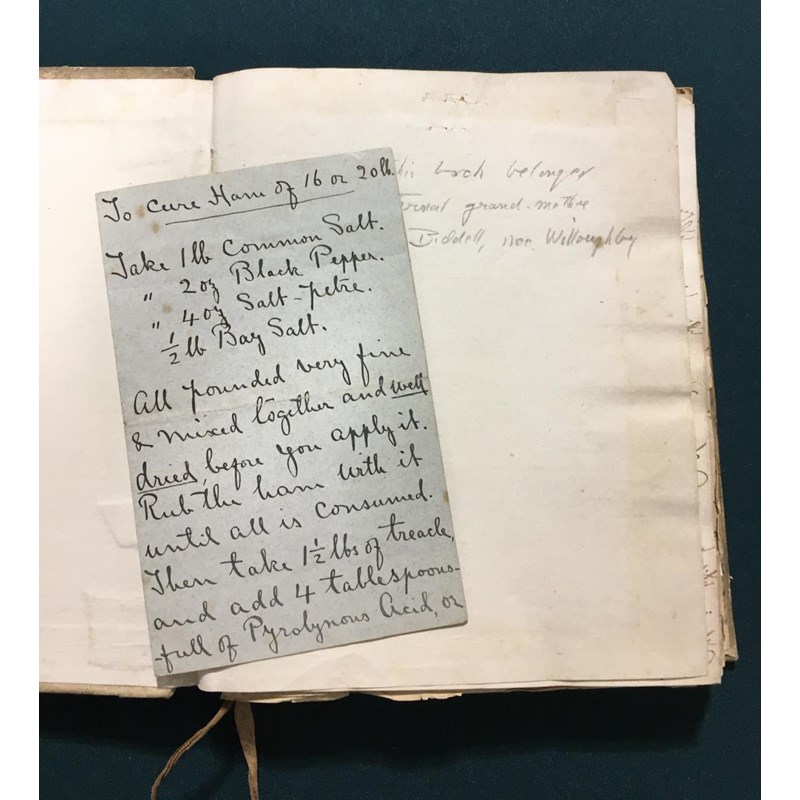 To Cure Ham of 16 or 20lb.
Take 1lb Common Salt.
" 2oz Black Pepper.
" 4oz Salt-petre.
½ lb Bay Salt.
All pounded very fine
& mixed together and well
dried, before you apply it.
Rub the ham with it
until all is consumed.
Then take 1½ lbs of treacle,
and add 4 tablespoons-
-full of Pyrolynous Acid, or
book belonged
grand-mother
Biddell, nee Willoughby